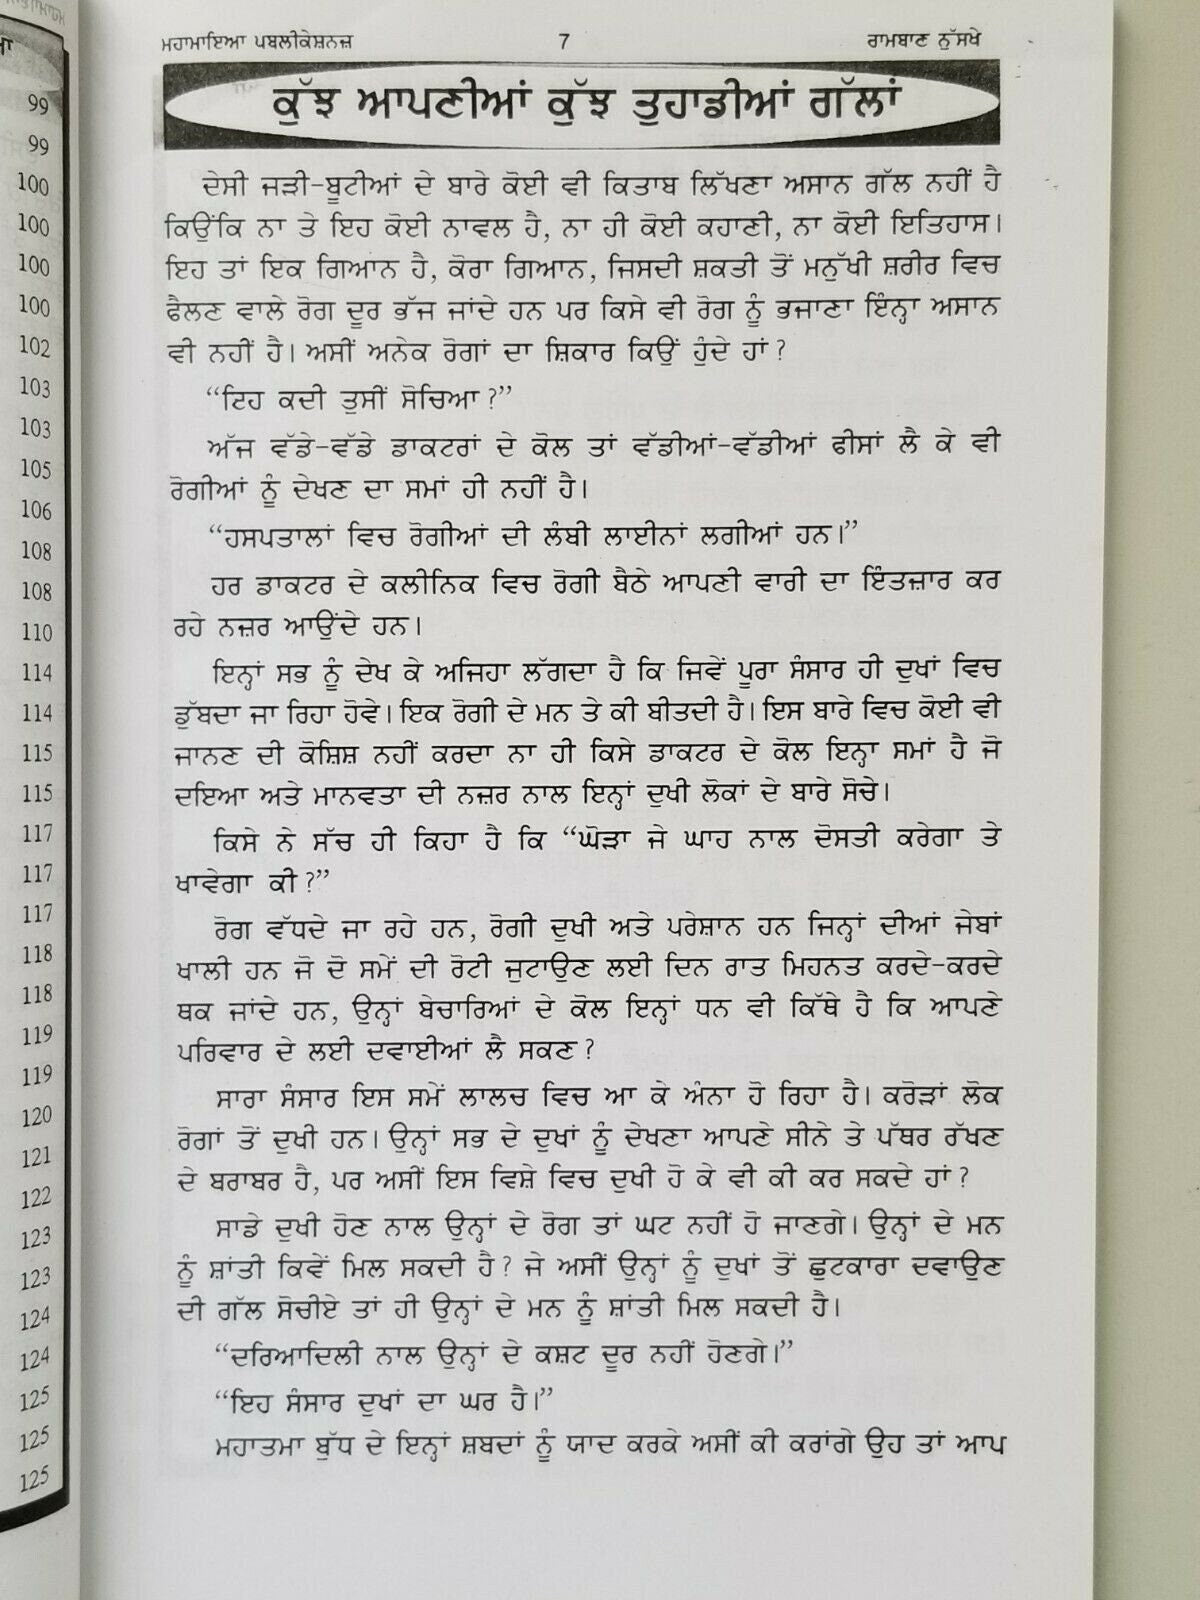 99
99
100
100
100
100
102
103
103
105
106
108
108
110
114
114
115
115
117
117
117
118
118
119
119
120
121
122
123
123
124
124
125
125
125
ਮਹਾਮਾਇਆ ਪਬਲੀਕੇਸ਼ਨਜ਼ 7 ਰਾਮਬਾਣ ਨੁੱਸਖੇ
ਕੁੱਝ ਆਪਣੀਆਂ ਕੁੱਝ ਤੁਹਾਡੀਆਂ ਗੱਲਾਂ
ਦੇਸੀ ਜੜੀ-ਬੂਟੀਆਂ ਦੇ ਬਾਰੇ ਕੋਈ ਵੀ ਕਿਤਾਬ ਲਿੱਖਣਾ ਅਸਾਨ ਗੱਲ ਨਹੀਂ ਹੈ
ਕਿਉਂਕਿ ਨਾ ਤੇ ਇਹ ਕੋਈ ਨਾਵਲ ਹੈ, ਨਾ ਹੀ ਕੋਈ ਕਹਾਣੀ, ਨਾ ਕੋਈ ਇਤਿਹਾਸ।
ਇਹ ਤਾਂ ਇਕ ਗਿਆਨ ਹੈ, ਕੋਰਾ ਗਿਆਨ, ਜਿਸਦੀ ਸ਼ਕਤੀ ਤੋਂ ਮਨੁੱਖੀ ਸ਼ਰੀਰ ਵਿਚ
ਫੈਲਣ ਵਾਲੇ ਰੋਗ ਦੂਰ ਭੱਜ ਜਾਂਦੇ ਹਨ ਪਰ ਕਿਸੇ ਵੀ ਰੋਗ ਨੂੰ ਭਜਾਣਾ ਇੰਨ੍ਹਾ ਅਸਾਨ
ਵੀ ਨਹੀਂ ਹੈ। ਅਸੀਂ ਅਨੇਕ ਰੋਗਾਂ ਦਾ ਸ਼ਿਕਾਰ ਕਿਉਂ ਹੁੰਦੇ ਹਾਂ?
“ਇਹ ਕਦੀ ਤੁਸੀਂ ਸੋਚਿਆ?”
ਅੱਜ ਵੱਡੇ-ਵੱਡੇ ਡਾਕਟਰਾਂ ਦੇ ਕੋਲ ਤਾਂ ਵੱਡੀਆਂ-ਵੱਡੀਆਂ ਫੀਸਾਂ ਲੈ ਕੇ ਵੀ
ਰੋਗੀਆਂ ਨੂੰ ਦੇਖਣ ਦਾ ਸਮਾਂ ਹੀ ਨਹੀਂ ਹੈ।
“ਹਸਪਤਾਲਾਂ ਵਿਚ ਰੋਗੀਆਂ ਦੀ ਲੰਬੀ ਲਾਈਨਾਂ ਲਗੀਆਂ ਹਨ।”
ਹਰ ਡਾਕਟਰ ਦੇ ਕਲੀਨਿਕ ਵਿਚ ਰੋਗੀ ਬੈਠੇ ਆਪਣੀ ਵਾਰੀ ਦਾ ਇੰਤਜ਼ਾਰ ਕਰ
ਰਹੇ ਨਜ਼ਰ ਆਉਂਦੇ ਹਨ।
ਇਨ੍ਹਾਂ ਸਭ ਨੂੰ ਦੇਖ ਕੇ ਅਜਿਹਾ ਲੱਗਦਾ ਹੈ ਕਿ ਜਿਵੇਂ ਪੂਰਾ ਸੰਸਾਰ ਹੀ ਦੁਖਾਂ ਵਿਚ
ਡੁੱਬਦਾ ਜਾ ਰਿਹਾ ਹੋਵੇ। ਇਕ ਰੋਗੀ ਦੇ ਮਨ ਤੇ ਕੀ ਬੀਤਦੀ ਹੈ। ਇਸ ਬਾਰੇ ਵਿਚ ਕੋਈ ਵੀ
ਜਾਨਣ ਦੀ ਕੋਸ਼ਿਸ਼ ਨਹੀਂ ਕਰਦਾ ਨਾ ਹੀ ਕਿਸੇ ਡਾਕਟਰ ਦੇ ਕੋਲ ਇਨ੍ਹਾ ਸਮਾਂ ਹੈ ਜੋ
ਦਇਆ ਅਤੇ ਮਾਨਵਤਾ ਦੀ ਨਜ਼ਰ ਨਾਲ ਇਨ੍ਹਾਂ ਦੁਖੀ ਲੋਕਾਂ ਦੇ ਬਾਰੇ ਸੋਚੇ।
ਕਿਸੇ ਨੇ ਸੱਚ ਹੀ ਕਿਹਾ ਹੈ ਕਿ “ਘੋੜਾ ਜੇ ਘਾਹ ਨਾਲ ਦੋਸਤੀ ਕਰੇਗਾ ਤੇ
ਖਾਵੇਗਾ ਕੀ?”
ਰੋਗ ਵੱਧਦੇ ਜਾ ਰਹੇ ਹਨ, ਰੋਗੀ ਦੁਖੀ ਅਤੇ ਪਰੇਸ਼ਾਨ ਹਨ ਜਿਨ੍ਹਾਂ ਦੀਆਂ ਜੇਬਾਂ
ਖਾਲੀ ਹਨ ਜੋ ਦੋ ਸਮੇਂ ਦੀ ਰੋਟੀ ਜੁਟਾਉਣ ਲਈ ਦਿਨ ਰਾਤ ਮਿਹਨਤ ਕਰਦੇ-ਕਰਦੇ
ਥਕ ਜਾਂਦੇ ਹਨ, ਉਨ੍ਹਾਂ ਬੇਚਾਰਿਆਂ ਦੇ ਕੋਲ ਇਨ੍ਹਾਂ ਧਨ ਵੀ ਕਿੱਥੇ ਹੈ ਕਿ ਆਪਣੇ
ਪਰਿਵਾਰ ਦੇ ਲਈ ਦਵਾਈਆਂ ਲੈ ਸਕਣ?
ਸਾਰਾ ਸੰਸਾਰ ਇਸ ਸਮੇਂ ਲਾਲਚ ਵਿਚ ਆ ਕੇ ਅੰਨਾ ਹੋ ਰਿਹਾ ਹੈ। ਕਰੋੜਾਂ ਲੋਕ
ਰੋਗਾਂ ਤੋਂ ਦੁਖੀ ਹਨ। ਉਨ੍ਹਾਂ ਸਭ ਦੇ ਦੁਖਾਂ ਨੂੰ ਦੇਖਣਾ ਆਪਣੇ ਸੀਨੇ ਤੇ ਪੱਥਰ ਰੱਖਣ
ਦੇ ਬਰਾਬਰ ਹੈ, ਪਰ ਅਸੀਂ ਇਸ ਵਿਸ਼ੇ ਵਿਚ ਦੁਖੀ ਹੋ ਕੇ ਵੀ ਕੀ ਕਰ ਸਕਦੇ ਹਾਂ?
ਸਾਡੇ ਦੁਖੀ ਹੋਣ ਨਾਲ ਉਨ੍ਹਾਂ ਦੇ ਰੋਗ ਤਾਂ ਘਟ ਨਹੀਂ ਹੋ ਜਾਣਗੇ। ਉਨ੍ਹਾਂ ਦੇ ਮਨ
ਨੂੰ ਸ਼ਾਂਤੀ ਕਿਵੇਂ ਮਿਲ ਸਕਦੀ ਹੈ? ਜੇ ਅਸੀਂ ਉਨ੍ਹਾਂ ਨੂੰ ਦੁਖਾਂ ਤੋਂ ਛੁਟਕਾਰਾ ਦਵਾਉਣ
ਦੀ ਗੱਲ ਸੋਚੀਏ ਤਾਂ ਹੀ ਉਨ੍ਹਾਂ ਦੇ ਮਨ ਨੂੰ ਸ਼ਾਂਤੀ ਮਿਲ ਸਕਦੀ ਹੈ।
“ਦਰਿਆਦਿਲੀ ਨਾਲ ਉਨ੍ਹਾਂ ਦੇ ਕਸ਼ਟ ਦੂਰ ਨਹੀਂ ਹੋਣਗੇ।”
“ਇਹ ਸੰਸਾਰ ਦੁਖਾਂ ਦਾ ਘਰ ਹੈ।”
ਮਹਾਤਮਾ ਬੁੱਧ ਦੇ ਇਨ੍ਹਾਂ ਸ਼ਬਦਾਂ ਨੂੰ ਯਾਦ ਕਰਕੇ ਅਸੀਂ ਕੀ ਕਰਾਂਗੇ ਉਹ ਤਾਂ ਆਪ